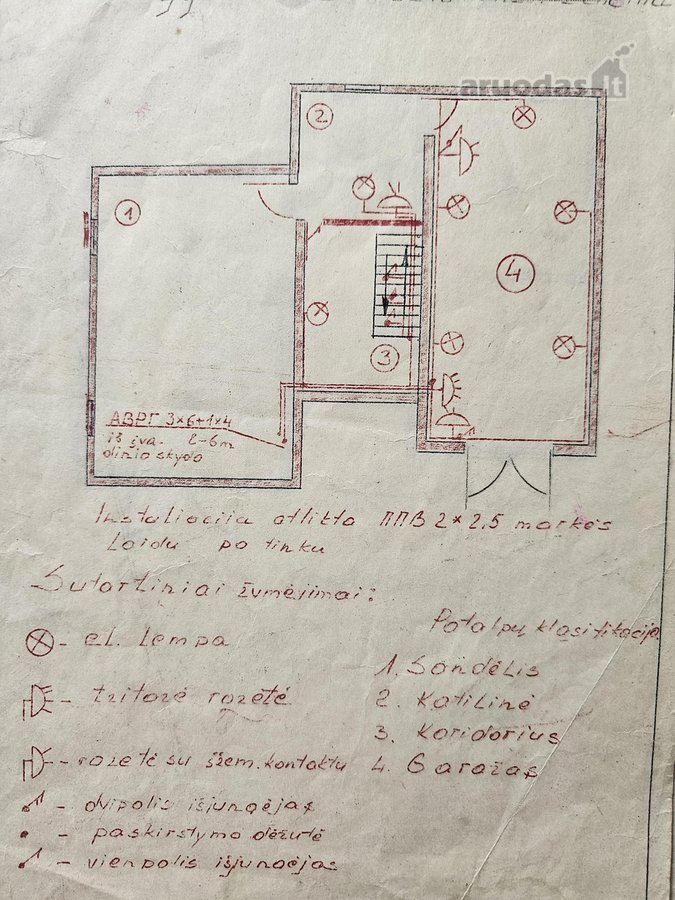 aruodas.lt
2
1
4
3
АВРГ 3×6+1×4
iš įva. ℓ-6m
dinio skydo
Instaliacija atlikta ППВ 2×2,5 markės
laidu po tinku
Sutartiniai žymėjimai:
- el. lempa
- trifazė rozetė
- rozetė su įžem. kontaktu
- dvipolis išjungėjas
- paskirstymo dėžutė
- vienpolis išjungėjas
Patalpų klasifikacija
1. Sandėlis
2. Katilinė
3. Koridorius
4. Garažas